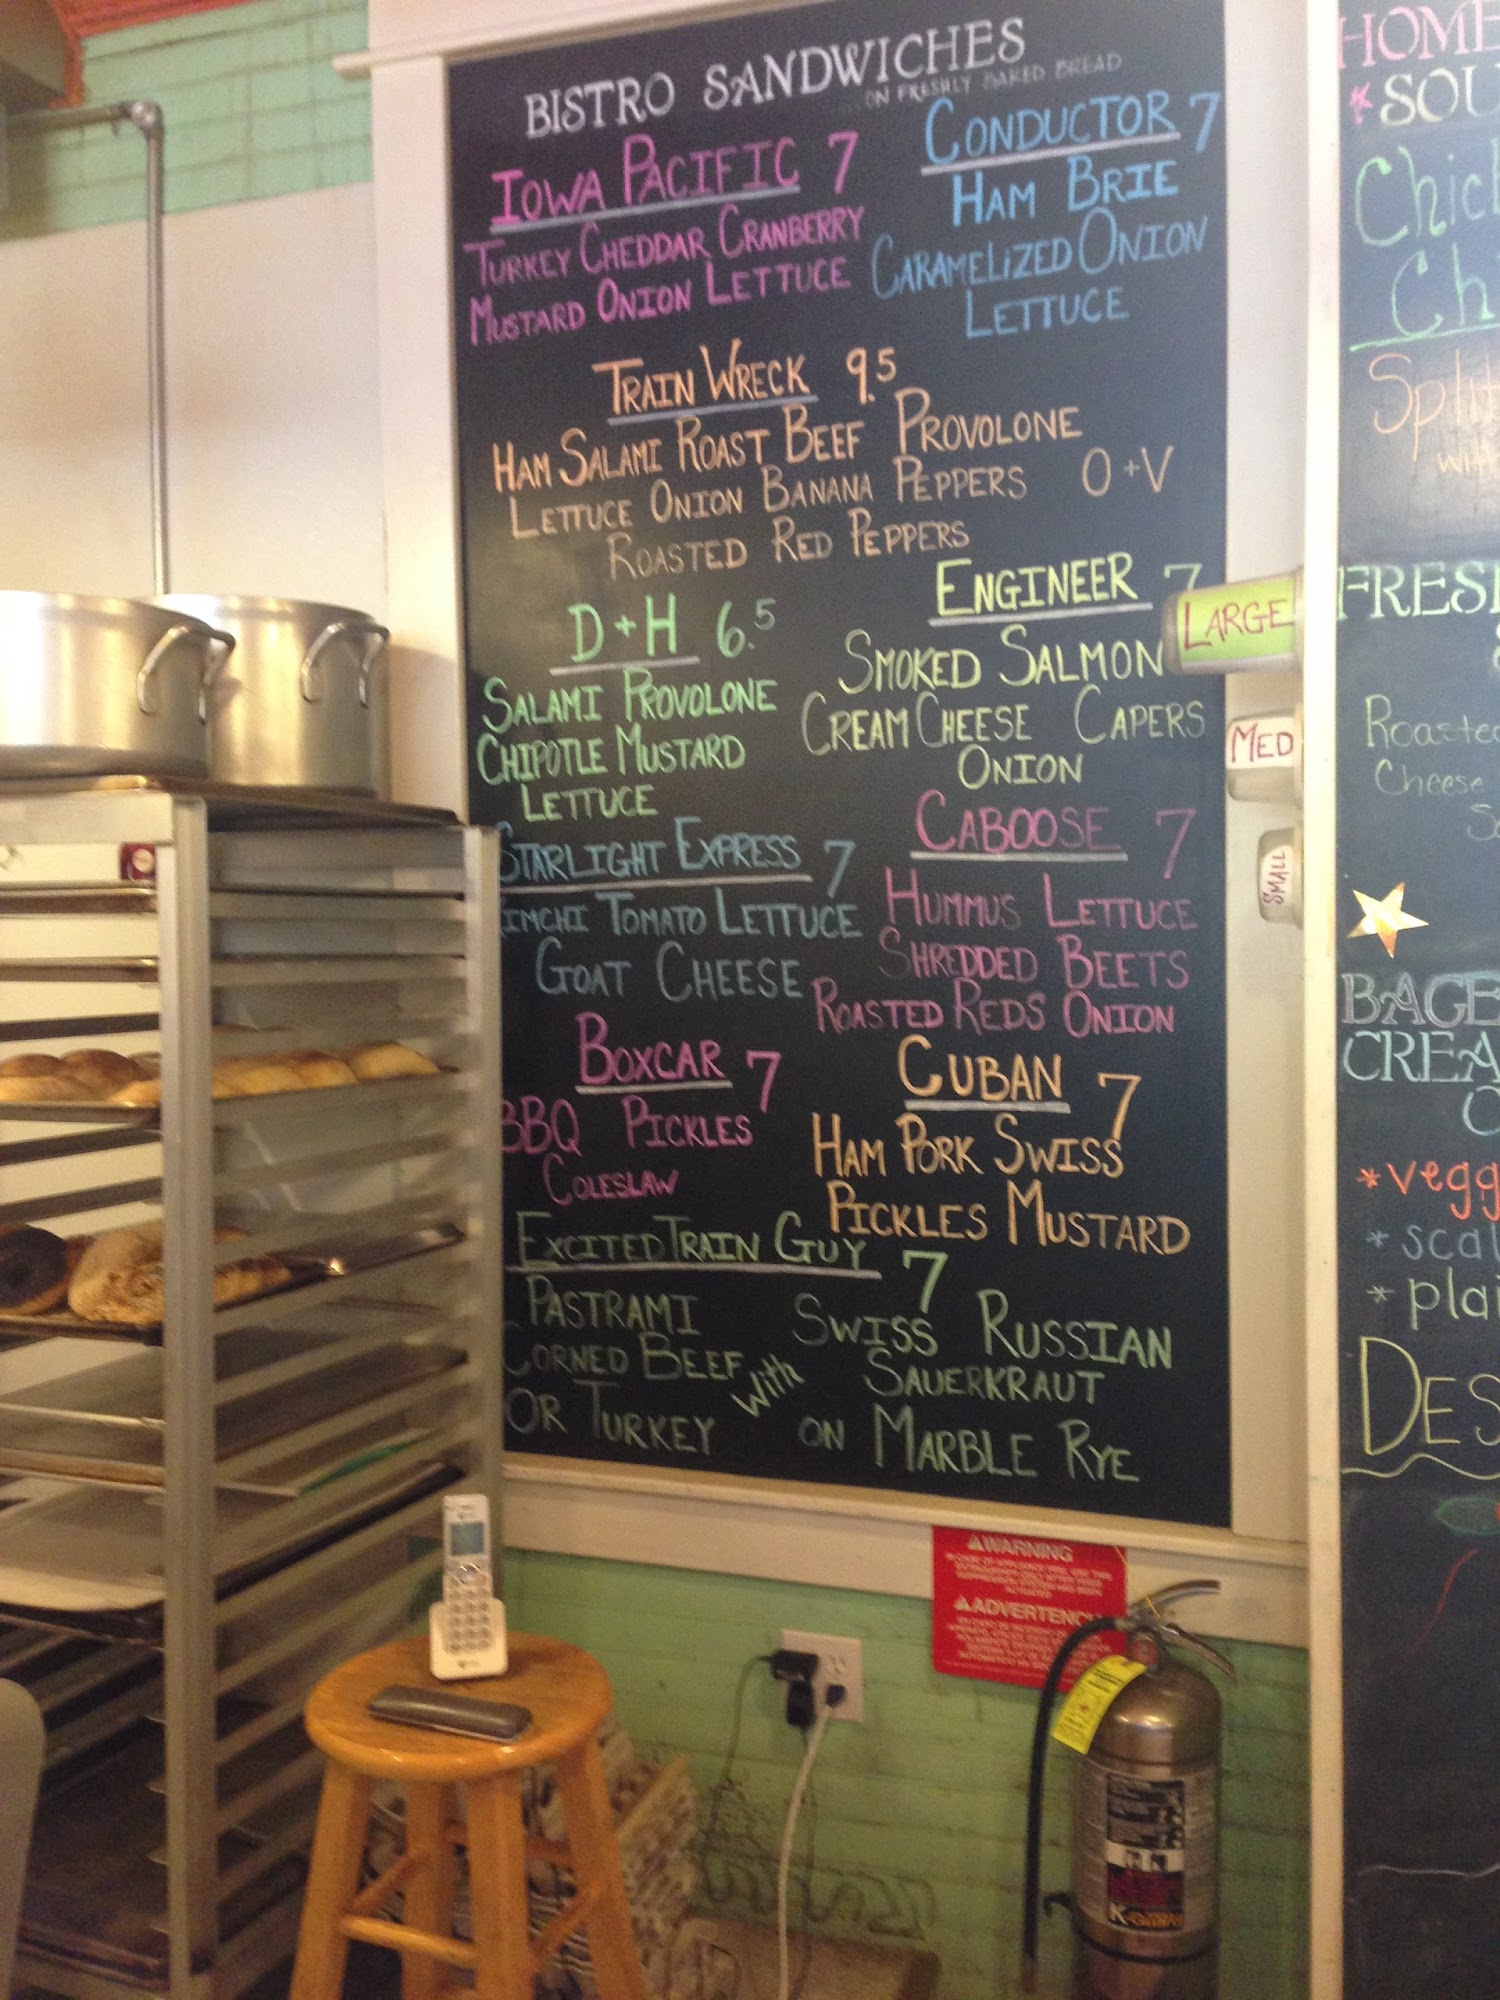 BISTRO SANDWICHES
ON FRESHLY BAKED BREAD
IOWA PACIFIC 7
TURKEY CHEDDAR CRANBERRY
MUSTARD ONION LETTUCE
CONDUCTOR 7
HAM BRIE
CARAMELIZED ONION
LETTUCE
TRAIN WRECK 9.5
HAM SALAMI ROAST BEEF PROVOLONE
LETTUCE ONION BANANA PEPPERS O+V
ROASTED RED PEPPERS
D+H 6.5
SALAMI PROVOLONE
CHIPOTLE MUSTARD
LETTUCE
ENGINEER 7
SMOKED SALMON
CREAM CHEESE CAPERS
ONION
STARLIGHT EXPRESS 7
IMCHI TOMATO LETTUCE
GOAT CHEESE
CABOOSE 7
HUMMUS LETTUCE
SHREDDED BEETS
ROASTED REDS ONION
BOXCAR 7
BBQ PICKLES
COLESLAW
CUBAN 7
HAM PORK SWISS
PICKLES MUSTARD
EXCITED TRAIN GUY 7
PASTRAMI
CORNED BEEF
OR TURKEY
with
SWISS RUSSIAN
SAUERKRAUT
ON MARBLE RYE
LARGE
MED
SMALL
HOME
*SOU
Chic
Ch
Split
with
FRES
Roasted
Cheese
BAGE
CREA
*vegg
*scal
*plai
DES
WARNING
ADVERTENC
K